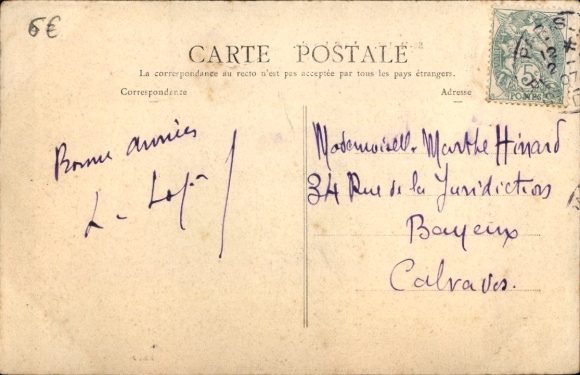 6€
CARTE POSTALE
La correspondance au recto n'est pas acceptée par tous les pays étrangers.
Correspondance
Adresse
Bonne années
Mademoiselle Marthe
34 Rue de la Juridiction
Bayeux
Calvados.